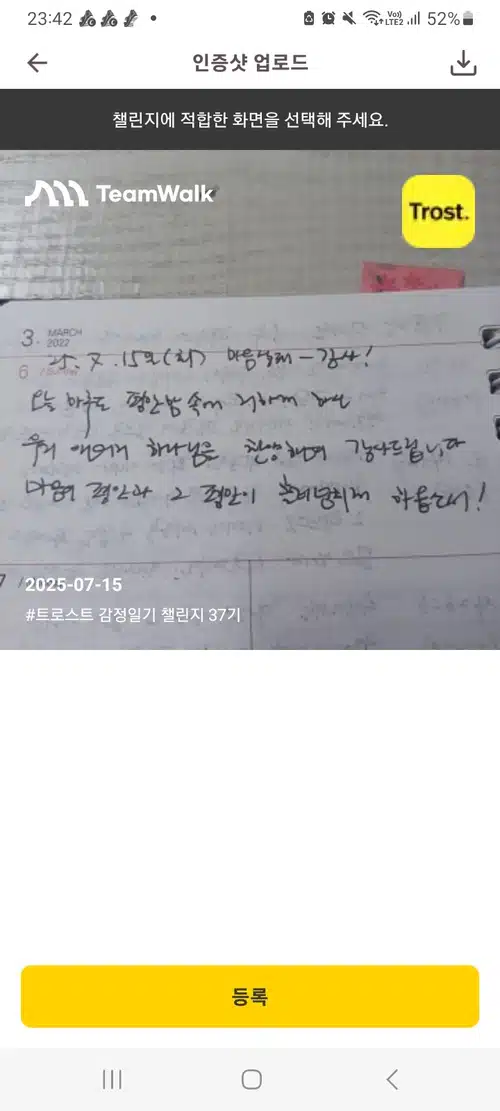 23:42
Vo))
LTE2
52%
인증샷 업로드
챌린지에 적합한 화면을 선택해 주세요.
TeamWalk
Trost.
3. MARCH
2022
25. 7. 15일(화) 마음날씨 - 감사!
6
오늘 하루도 평안함 속에 거하게 하신
우리 하나님을 찬양하며 감사드립니다
마음의 평안과 그 평안이 흘러넘치게 하옵소서!
7
2025-07-15
#트로스트 감정일기 챌린지 37기
등록